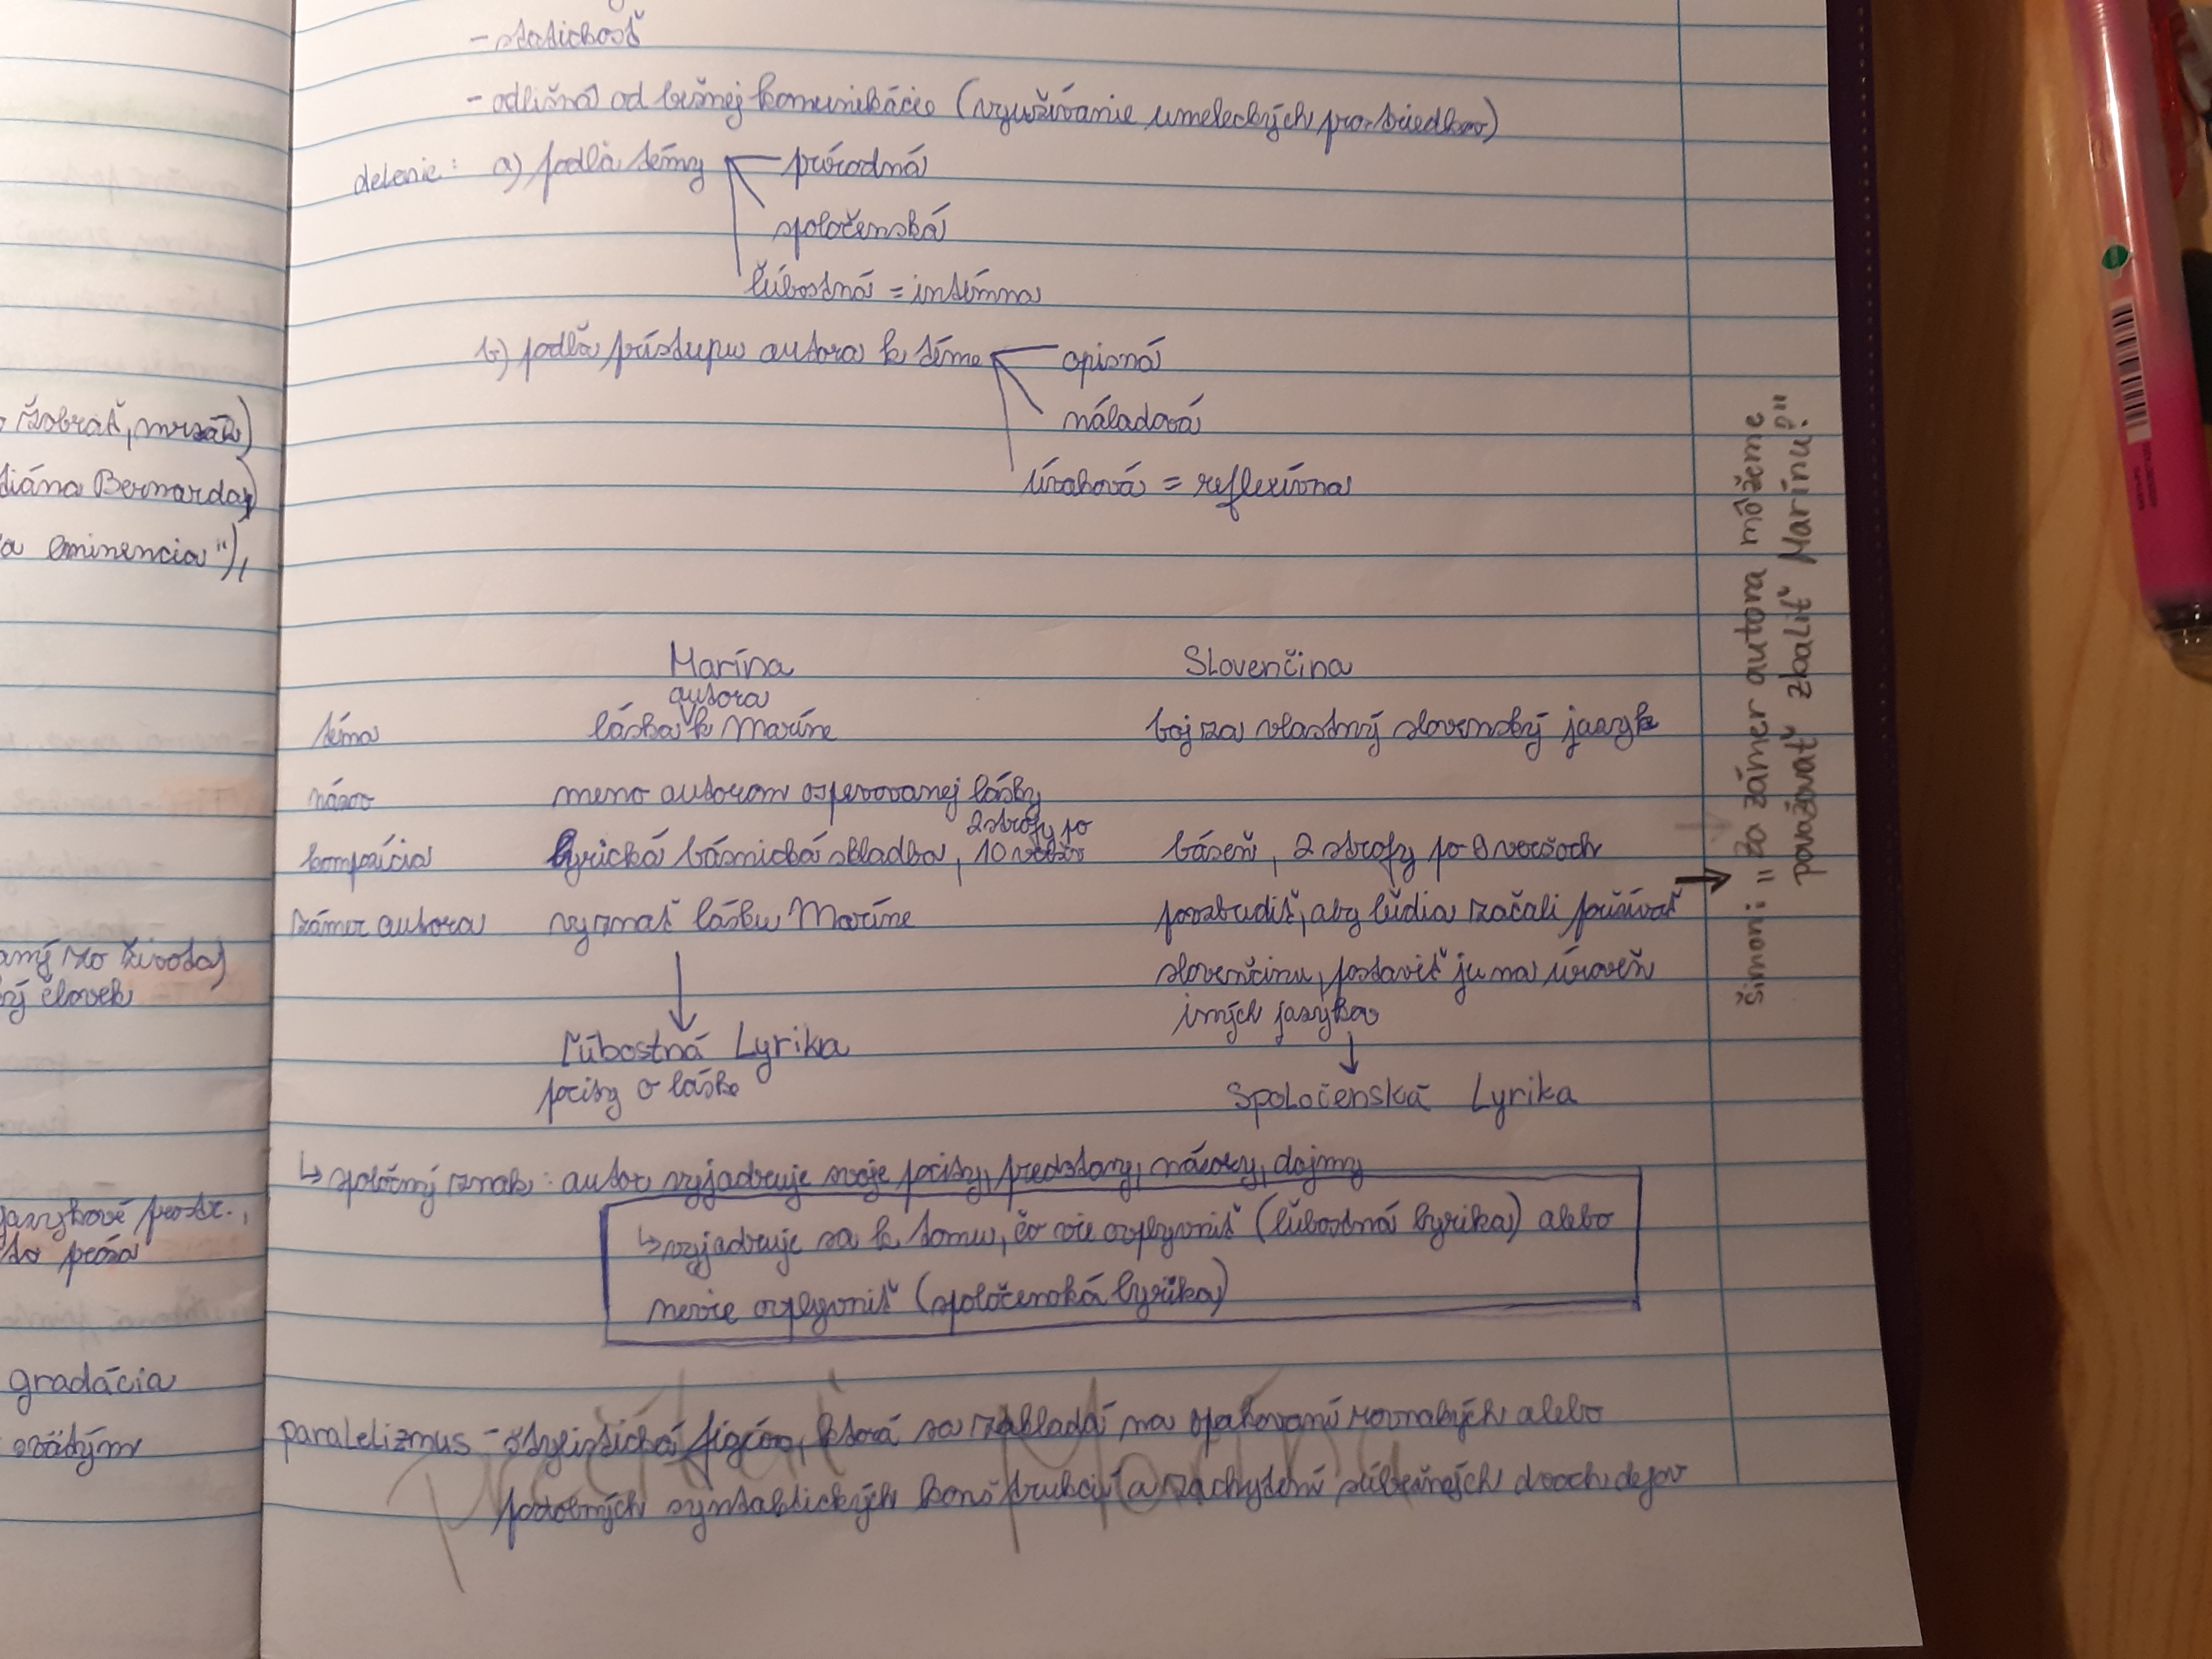 - statickosť
- odlišná od bežnej komunikácie (využívanie umeleckých prostriedkov)
delenie: a) podľa témy
prírodná
spoločenská
ľúbostná = intímna
b) podľa prístupu autora k téme
opisná
náladová
úvahová = reflexívna
žobrák, mrzák)
diána Bernarda)
a eminencia"),
Marína
Slovenčina
autora
téma
láska k Maríne
boj za vlastný slovenský jazyk
názov
meno autorom ospevovanej lásky
kompozícia
lyrická básnická skladba, 2 strofy po 10 veršov
báseň, 2 strofy po 8 veršoch
zámer autora
vyznať lásku Maríne
povzbudiť, aby ľudia začali používať
slovenčinu, postaviť ju na úroveň
iných jazykov
Ľúbostná Lyrika
pocity o láske
Spoločenská Lyrika
↳ spoločný znak: autor vyjadruje svoje pocity, predstavy, názory, dojmy
↳ vyjadruje sa k tomu, čo vie ovplyvniť (ľúbostná lyrika) alebo
nevie ovplyvniť (spoločenská lyrika)
paralelizmus - štylistická figúra, ktorá sa zakladá na opakovaní rovnakých alebo
podobných syntaktických konštrukcií a zachytení súbežných dvoch dejov
Šimoni: "za zámer autora môžeme
považovať zbaliť Marínu?"
zo života)
ný človek
jazykové prostr.,
to próza
gradácia